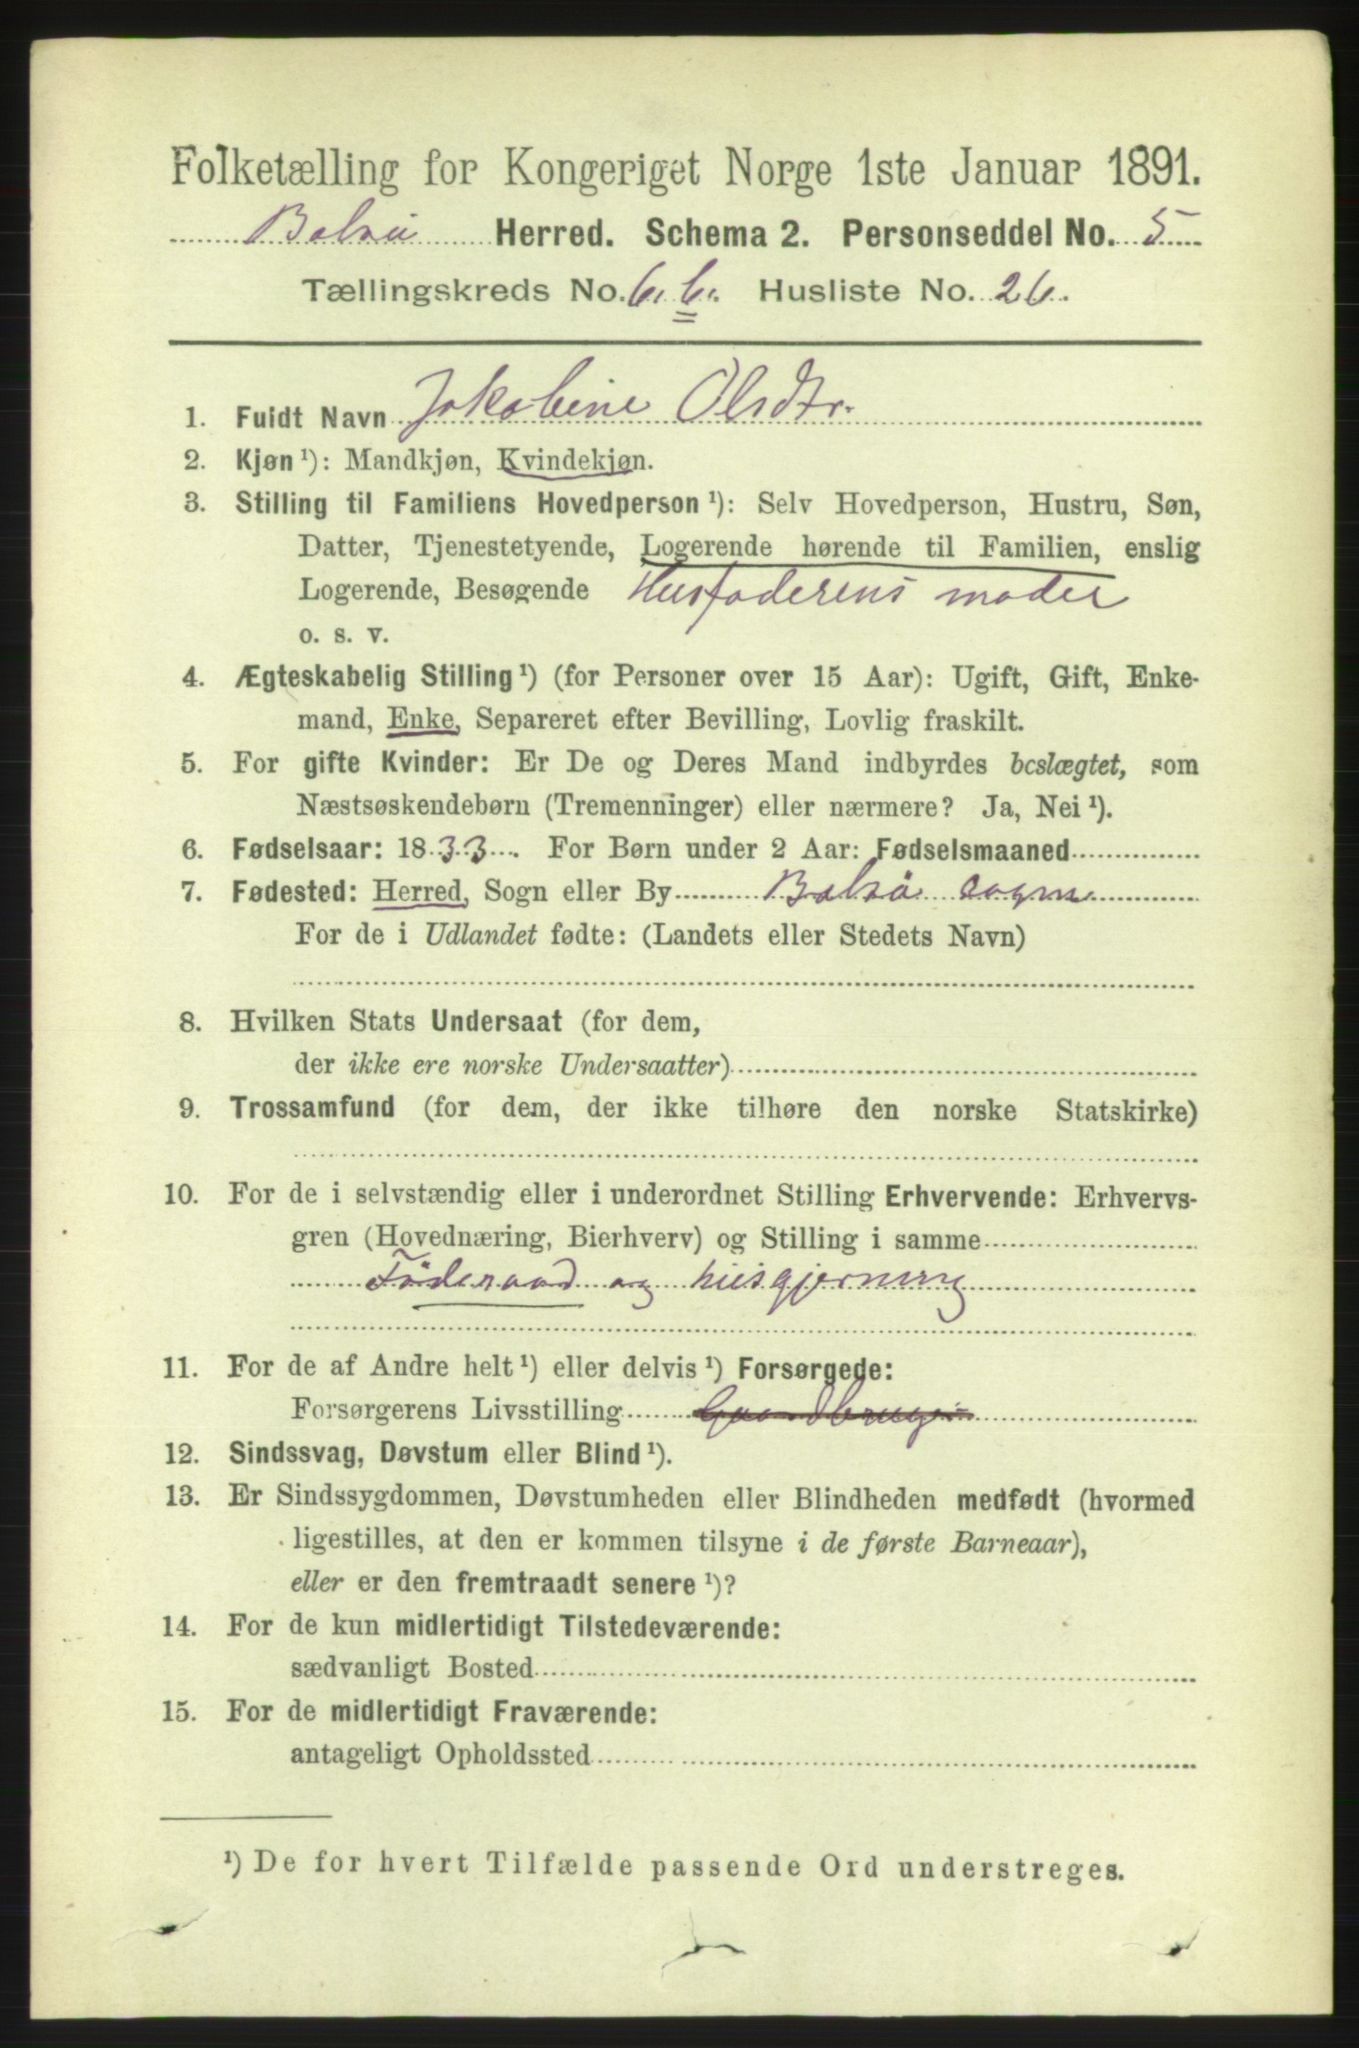 Folketælling for Kongeriget Norge 1ste Januar 1891.
Balsö Herred. Schema 2. Personseddel No. 5
Tællingskreds No. 6. b. Husliste No. 26.
1. Fuldt Navn Jakobine Olsdtr.
2. Kjøn ¹): Mandkjøn, Kvindekjøn.
3. Stilling til Familiens Hovedperson ¹): Selv Hovedperson, Hustru, Søn,
Datter, Tjenestetyende, Logerende hørende til Familien, enslig
Logerende, Besøgende Husfaderens moder
o. s. v.
4. Ægteskabelig Stilling ¹) (for Personer over 15 Aar): Ugift, Gift, Enke-
mand, Enke, Separeret efter Bevilling, Lovlig fraskilt.
5. For gifte Kvinder: Er De og Deres Mand indbyrdes beslægtet, som
Næstsøskendebørn (Tremenninger) eller nærmere? Ja, Nei ¹).
6. Fødselsaar: 1833. For Børn under 2 Aar: Fødselsmaaned
7. Fødested: Herred, Sogn eller By Balsö sogn
For de i Udlandet fødte: (Landets eller Stedets Navn)
8. Hvilken Stats Undersaat (for dem,
der ikke ere norske Undersaatter)
9. Trossamfund (for dem, der ikke tilhøre den norske Statskirke)
10. For de i selvstændig eller i underordnet Stilling Erhvervende: Erhvervs-
gren (Hovednæring, Bierhverv) og Stilling i samme
Föderaad og husgjerning
11. For de af Andre helt ¹) eller delvis ¹) Forsørgede:
Forsørgerens Livsstilling Gaardbruger
12. Sindssvag, Døvstum eller Blind ¹).
13. Er Sindssygdommen, Døvstumheden eller Blindheden medfødt (hvormed
ligestilles, at den er kommen tilsyne i de første Barneaar),
eller er den fremtraadt senere ¹)?
14. For de kun midlertidigt Tilstedeværende:
sædvanligt Bosted
15. For de midlertidigt Fraværende:
antageligt Opholdssted
¹) De for hvert Tilfælde passende Ord understreges.